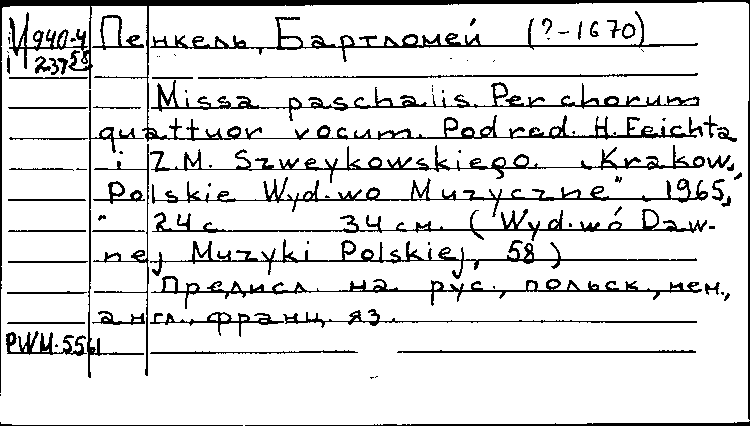 И 940-4 Пенкель, Бартломей (?-1670)
23758
Missa paschalis. Per chorum
quattuor vocum. Pod red. H. Feichta
i Z.M. Szweykowskiego. „Krakow,
Polskie Wyd-wo Muzyczne", 1965,
24 с 34 см. (Wyd-wó Daw-
nej Muzyki Polskiej, 58)
Предисл. на рус., польск., нем.,
англ., франц. яз.
PWM-5561